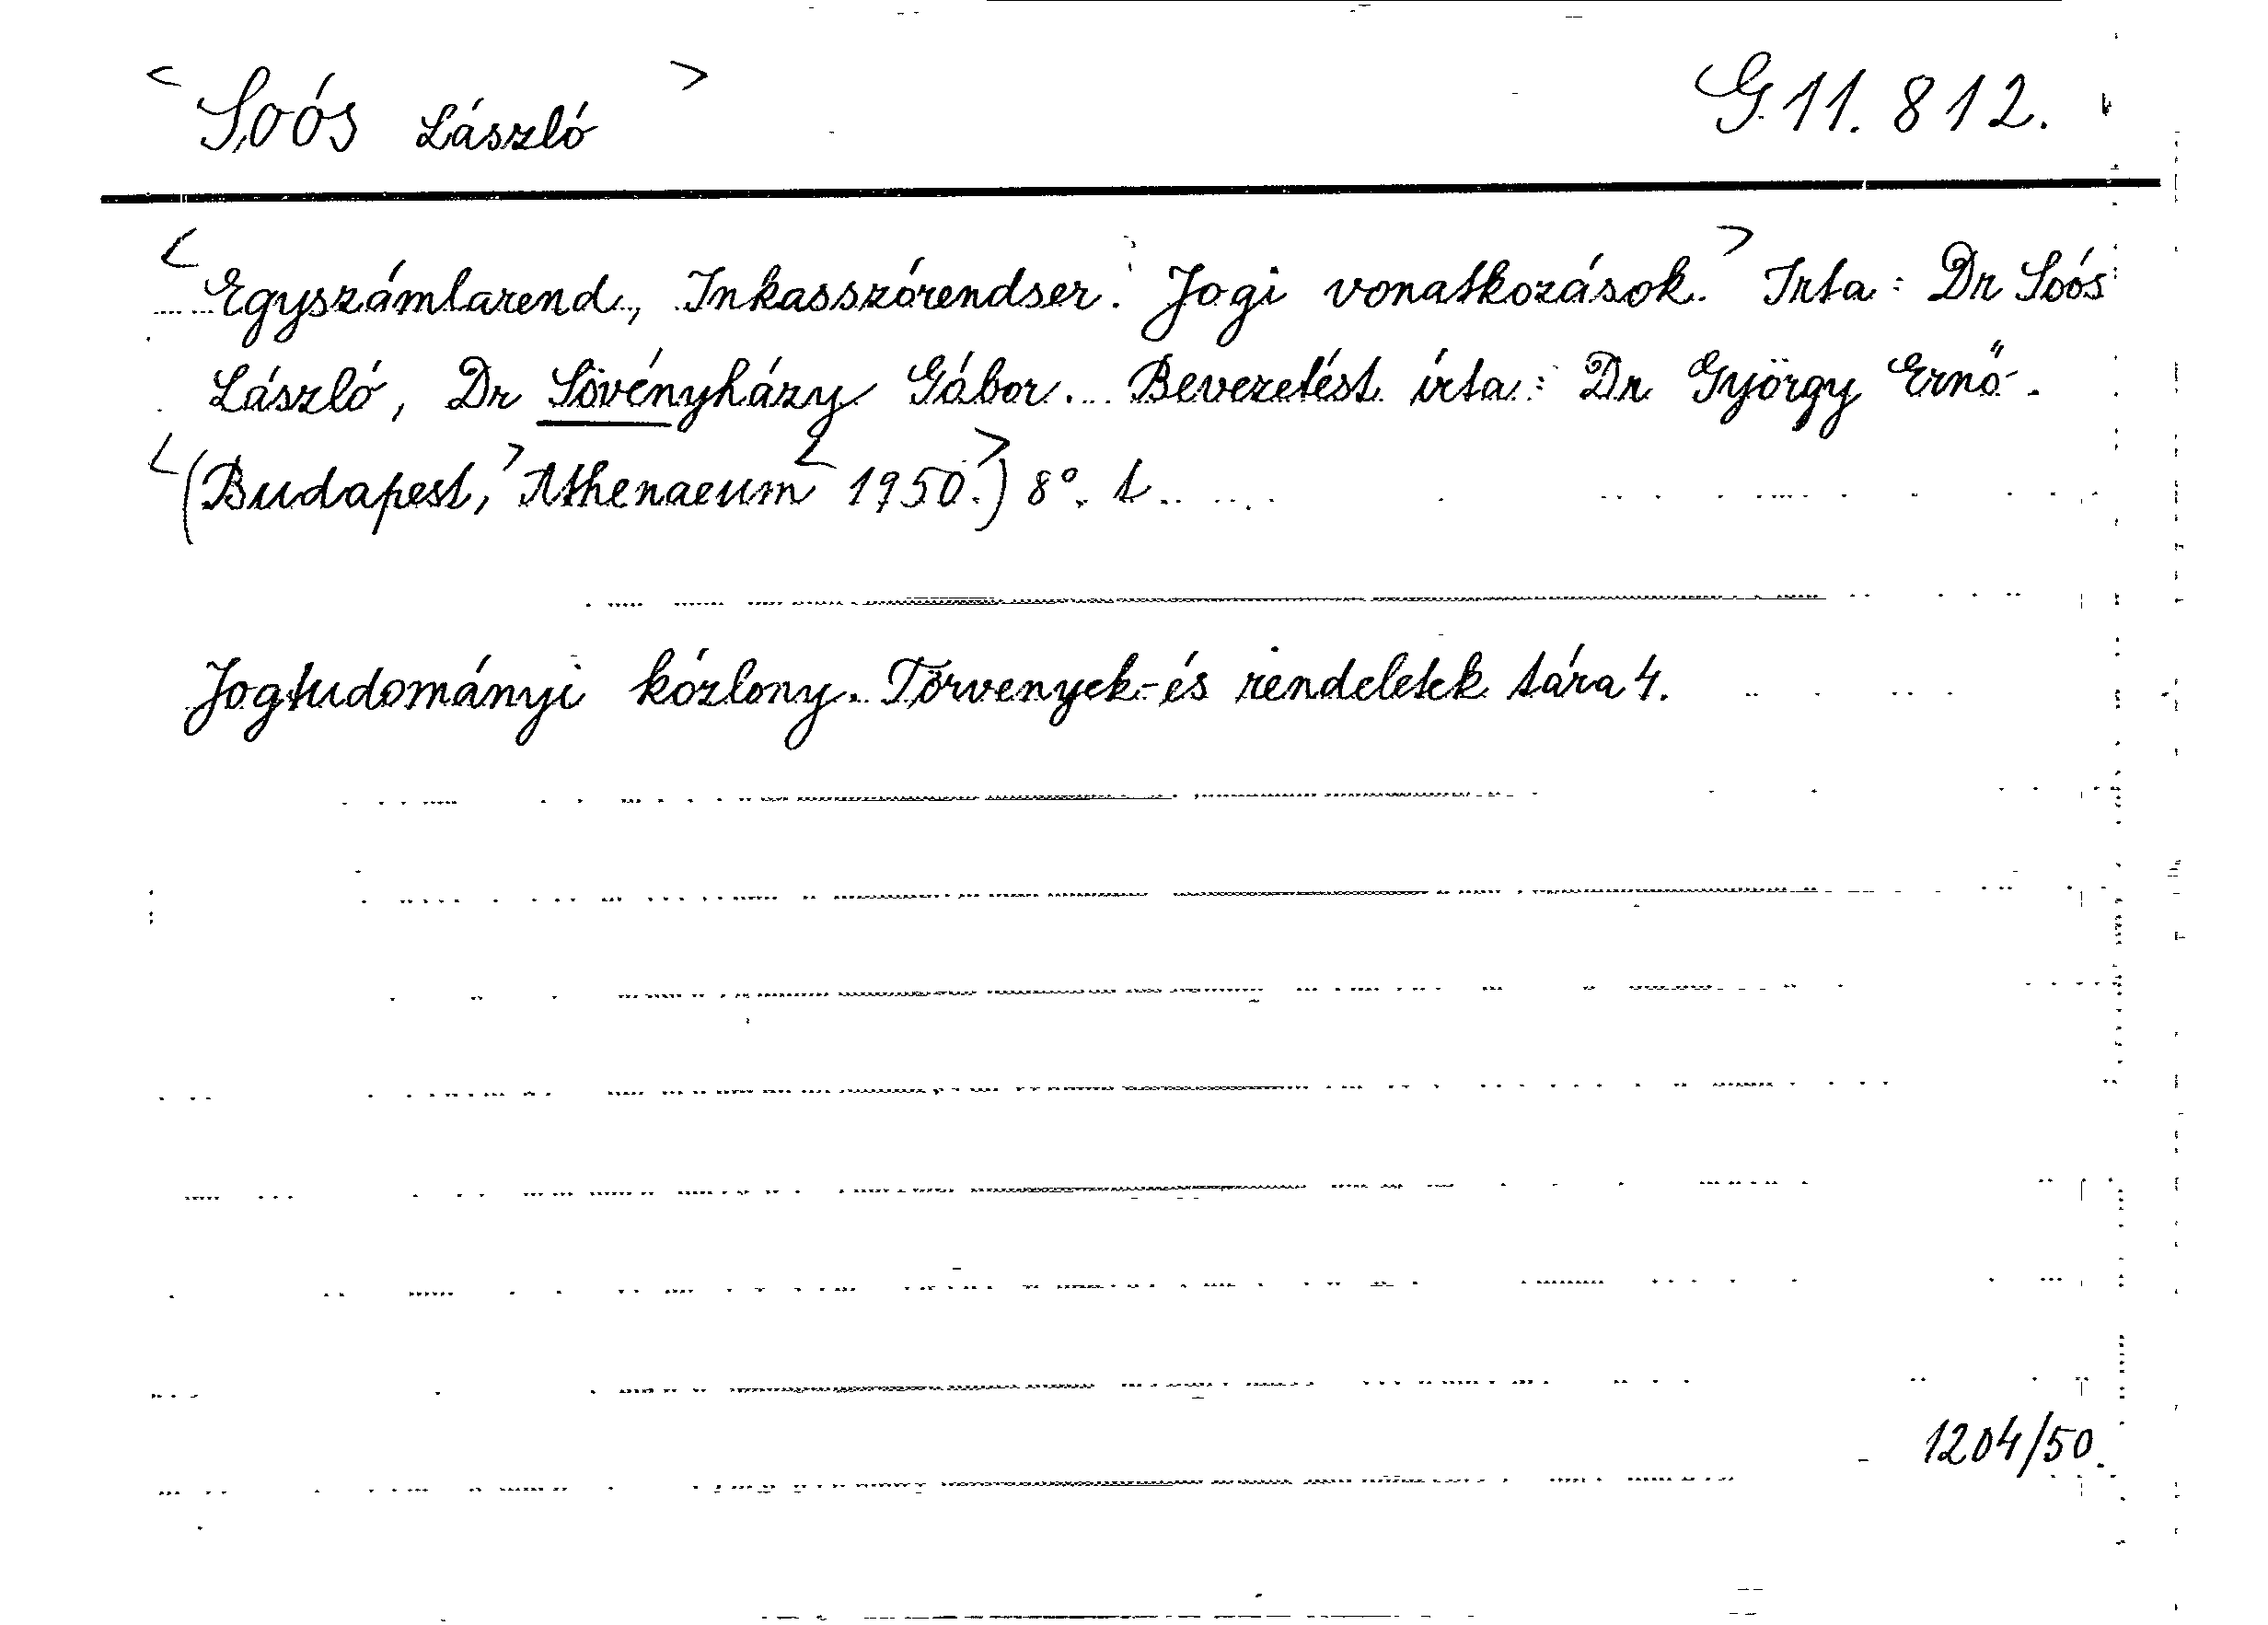 < Soós László > G 11.812.
< Egyszámlarend, Inkasszórendser. Jogi vonatkozások. > Irta: Dr Soós
László, Dr Sövényházy Gábor. Bevezetést írta: Dr György Ernő.
< (Budapest, > Athenaeum < 1950. >) 8°. t.
Jogtudományi közlony. Törvenyek-és rendeletek tára 4.
1204/50.